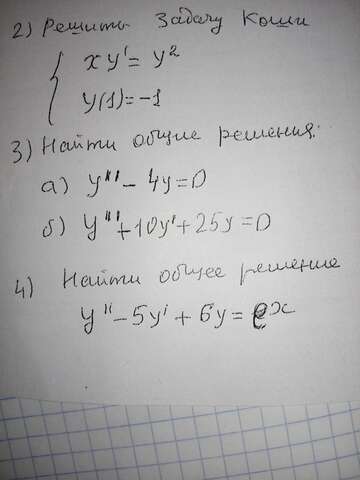 2) Решить задачу Коши
{ xy' = y²
y(1)=-1
3) Найти общие решения:
а) y''' - 4y=0
б) y'''+10y'+25y=0
4) Найти общее решение
y'' - 5y' + 6y = e^x